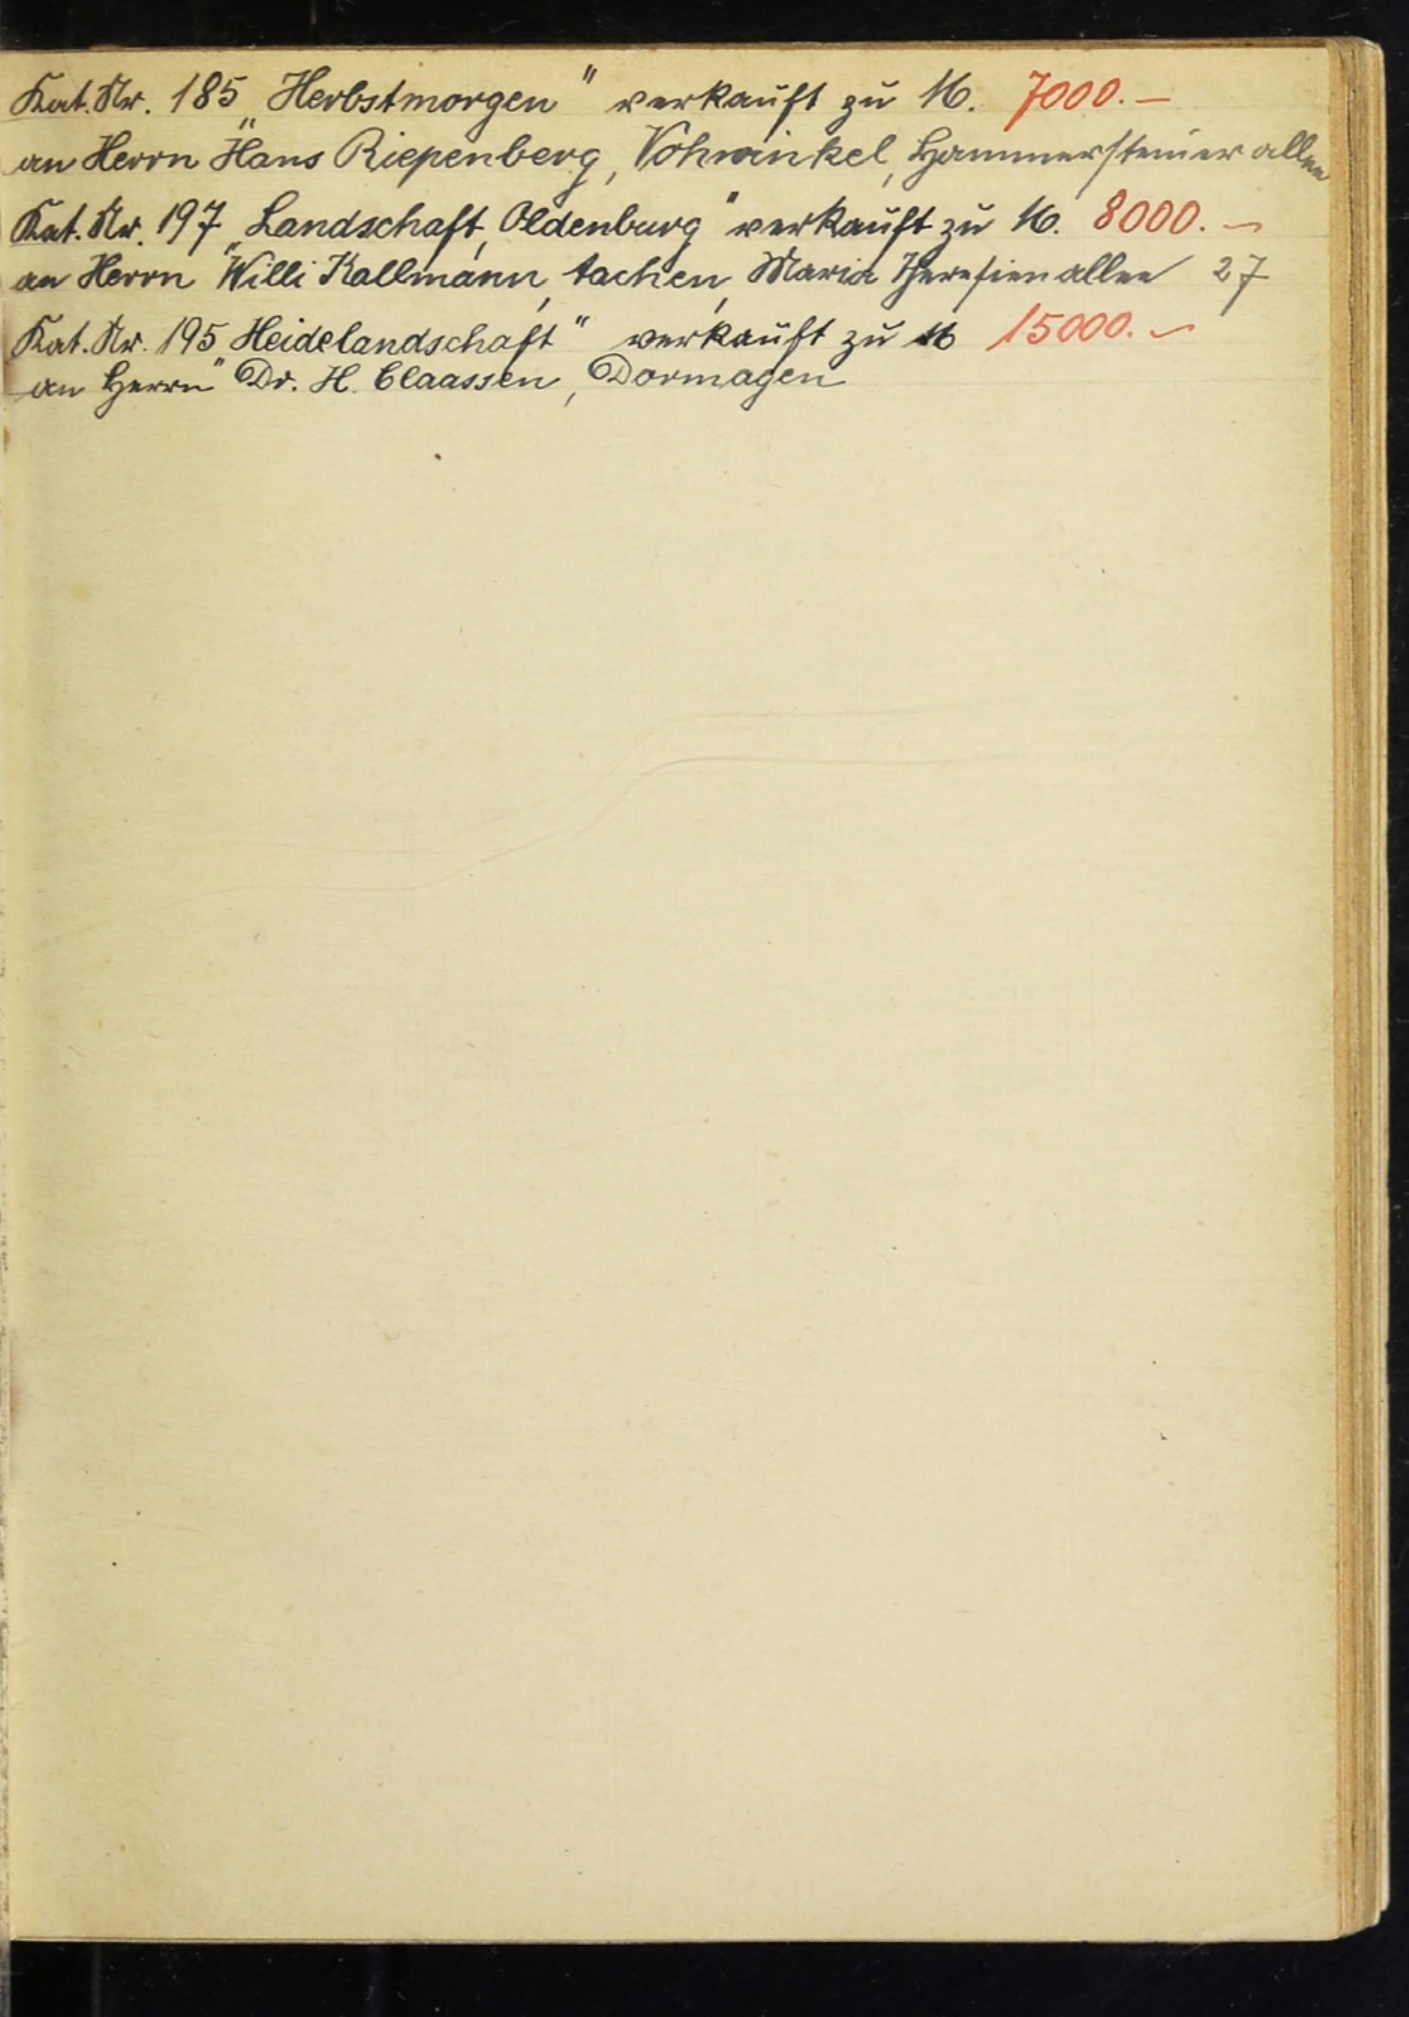 Kat. Nr. 185 „Herbstmorgen" verkauft zu M. 7000.—
an Herrn Hans Riepenberg, Vohwinkel, Hammersteiner allee
Kat. Nr. 197 „Landschaft, Oldenburg" verkauft zu M. 8000.—
an Herrn Willi Kallmann, Aachen, Maria Theresienallee 27
Kat. Nr. 195 „Heidelandschaft" verkauft zu M 15000.—
an Herrn Dr. H. Claassen, Dormagen